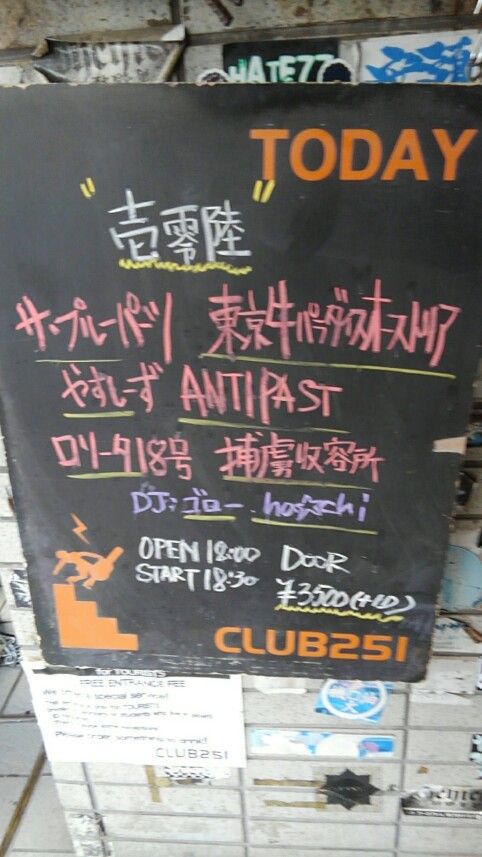 HATE77
TODAY
"壱零陸"
ザ・プルーパーツ 東京牛パラダイスオーストリア
やすしーず ANTIPAST
ロリータ18号 捕虜収容所
DJ:ゴロー. hogischi
OPEN 18:00 DOOR
START 18:30 ¥3500(+1D)
CLUB251
for TOURISTS
FREE ENTRANCE FEE
special
Please order something to drink!!
CLUB251